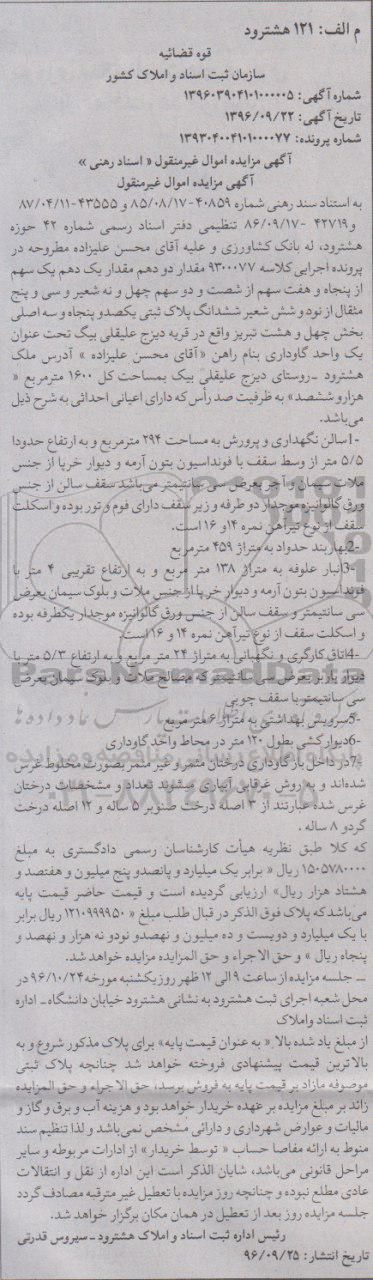 م الف: ۱۲۱ هشترود
قوه قضائیه
سازمان ثبت اسناد و املاک کشور
شماره آگهی: ۱۳۹۶۰۳۹۰۴۱۰۱۰۰۰۰۰۵
تاریخ آگهی: ۱۳۹۶/۰۹/۲۲
شماره پرونده: ۱۳۹۳۰۴۰۰۴۱۰۱۰۰۰۰۷۷
آگهی مزایده اموال غیرمنقول « اسناد رهنی »
آگهی مزایده اموال غیرمنقول
به استناد سند رهنی شماره ۴۰۸۵۹-۸۵/۰۸/۱۷ و ۴۳۵۵۵-۸۷/۰۴/۱۱
و ۴۲۷۱۹ -۸۶/۰۹/۱۷ تنظیمی دفتر اسناد رسمی شماره ۴۲ حوزه
هشترود، له بانک کشاورزی و علیه آقای محسن علیزاده مطروحه در
پرونده اجرایی کلاسه ۹۳۰۰۰۷۷ مقدار دو دهم مقدار یک دهم یک سهم
از پنجاه و هفت سهم از شصت و دو سهم چهل و نه شعیر و سی و پنج
مثقال از نود و شش شعیر ششدانگ پلاک ثبتی یکصدو پنجاه و سه اصلی
بخش چهل و هشت تبریز واقع در قریه دیزج علیقلی بیگ تحت عنوان
یک واحد گاوداری بنام راهن « آقای محسن علیزاده » آدرس ملک
هشترود ـ روستای دیزج علیقلی بیک بمساحت کل ۱۶۰۰ مترمربع «
هزارو ششصد» به ظرفیت صد رأس که دارای اعیانی احداثی به شرح ذیل
می‌باشد.
-1سالن نگهداری و پرورش به مساحت ۲۹۴ مترمربع و به ارتفاع حدودا
۵/۵ متر از وسط سقف با فونداسیون بتون آرمه و دیوار خرپا از جنس
ملات سیمان و آجر بعرض سی سانتیمتر می‌باشد سقف سالن از جنس
ورق گالوانیزه موجدار دو طرفه و زیر سقف دارای فوم و تور بوده و اسکلت
سقف از نوع تیرآهن نمره ۱۴و ۱۶ است.
-2بهاربند حدواد به متراژ ۴۵۹ مترمربع
-3انبار علوفه به متراژ ۱۳۸ متر مربع و به ارتفاع تقریبی ۴ متر با
فونداسیون بتون آرمه و دیوار خرپا از جنس ملات و بلوک سیمان بعرض
سی سانتیمتر و سقف سالن از جنس ورق گالوانیزه موجدار یکطرفه بوده
و اسکلت سقف از نوع تیرآهن نمره ۱۴ و ۱۶ است.
-4اتاق کارگری و نگهبانی به متراژ ۲۴ متر مربع و به ارتفاع ۵/۳ متر با
دیوار باربر بعرض سی سانتیمتر که مصالح ملات و بلوک سیمان بعرض
سی سانتیمتر با سقف چوبی
-5سرویس بهداشتی به متراژ ۶ متر مربع
-6دیوارکشی بطول ۱۲۰ متر در محاط واحد گاوداری
-7در داخل باز گاوداری درختان مثمر و غیر مثمر بصورت مخلوط غرس
شده‌اند و به روش غرقابی آبیاری میشوند تعداد و مشخصات درختان
غرس شده عبارتند از ۳ اصله درخت صنوبر ۵ ساله و ۱۲ اصله درخت
گردو ۸ ساله .
که کلا طبق نظریه هیأت کارشناسان رسمی دادگستری به مبلغ
۱۵۰۵۷۸۰۰۰۰ ریال « برابر یک میلیارد و پانصدو پنج میلیون و هفتصد و
هشتاد هزار ریال» ارزیابی گردیده است و قیمت حاضر قیمت پایه
می‌باشد که پلاک فوق الذکر در قبال طلب مبلغ « ۱۲۱۰۹۹۹۹۵۰ ریال برابر
با یک میلیارد و دویست و ده میلیون و نهصدو نودو نه هزار و نهصد و
پنجاه ریال » و حق الاجراء و حق المزایده مزایده خواهد شد.
ـ جلسه مزایده از ساعت ۹ الی ۱۲ ظهر روز یکشنبه مورخه ۹۶/۱۰/۲۴ در
محل شعبه اجرای ثبت هشترود به نشانی هشترود خیابان دانشگاه ـ اداره
ثبت اسناد واملاک
از مبلغ یاد شده بالا « به عنوان قیمت پایه» برای پلاک مذکور شروع و به
بالاترین قیمت پیشنهادی فروخته خواهد شد چنانچه پلاک ثبتی
موصوفه مازاد بر قیمت پایه به فروش برسد، حق الاجراء و حق المزایده
زائد بر مبلغ مزایده بر عهده خریدار خواهد بود و هزینه آب و برق و گاز و
مالیات و عوارض شهرداری و دارائی مشخص نمی‌باشد و لذا تنظیم سند
منوط به ارائه مفاصا حساب « توسط خریدار» از ادارات مربوطه و سایر
مراحل قانونی می‌باشد، شایان الذکر است این اداره از نقل و انتقالات
عادی مطلع نبوده و چنانچه روز مزایده با تعطیل غیر مترقبه مصادف گردد
جلسه مزایده روز بعد از تعطیل در همان مکان برگزار خواهد شد.
رئیس اداره ثبت اسناد و املاک هشترود ـ سیروس قدرتی
تاریخ انتشار: ۹۶/۰۹/۲۵